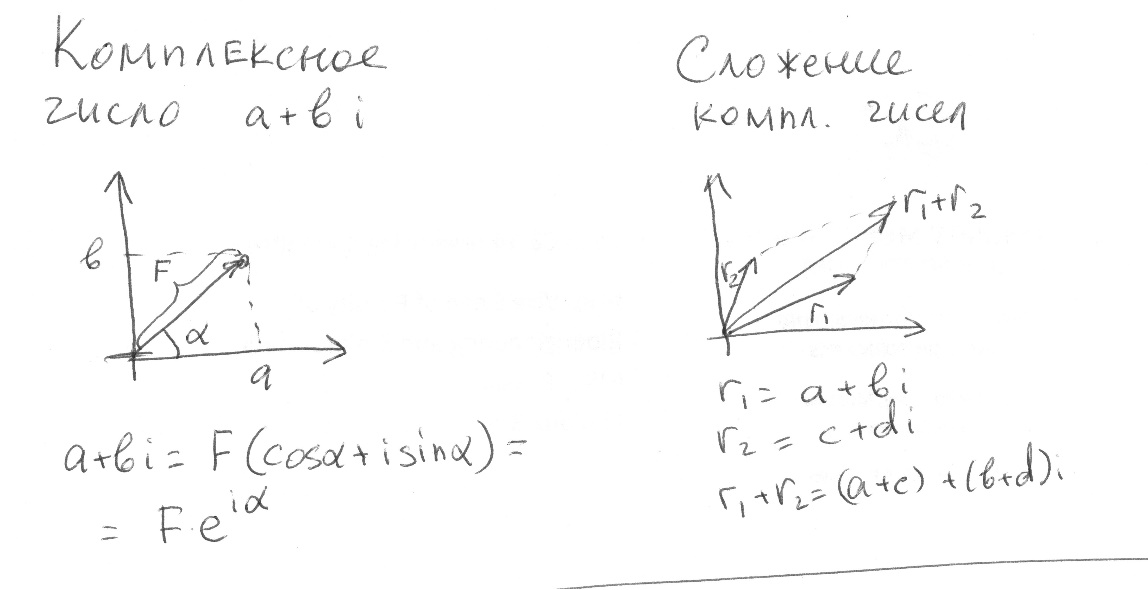 Комплексное
число a+bi
b
F
α
a
a+bi = F(cosα+isinα) =
= F·e^{iα}
Сложение
компл. чисел
r₁+r₂
r₂
r₁
r₁ = a+bi
r₂ = c+di
r₁+r₂=(a+c)+(b+d)i